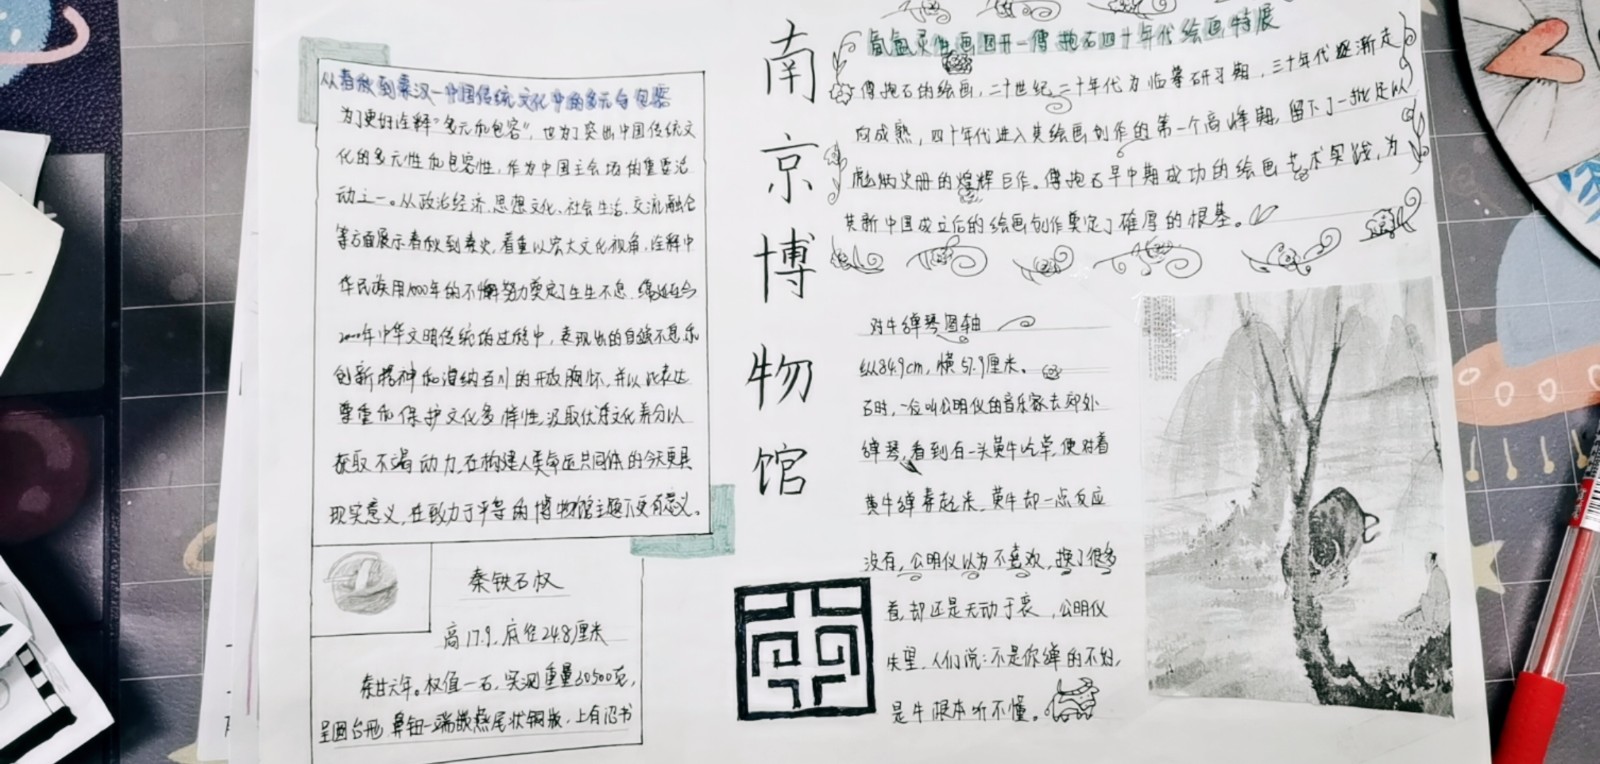 从春秋到秦汉—中国传统文化中的多元与包容
为了更好诠释"多元和包容",也为了突出中国传统文
化的多元性和包容性,作为中国主会场的重要活
动之一。从政治经济、思想文化、社会生活、交流融合
等方面展示春秋到秦史,着重以宏大文化视角,诠释中
华民族用1000年的不懈努力奠定了生生不息
2000年中华文明传统的过程中,表现出的自强不息、
创新精神和海纳百川的开放胸怀,并以此表达
尊重和保护文化多样性,汲取优秀文化养分以
获取不竭动力,在构建人类命运共同体的今天更具
现实意义,在致力于平等的博物馆主题下更有意义。
秦铁石权
高17.9,底径24.8厘米
秦廿六年。权值一石,实测重量30500克,
呈圆台形,鼻钮一端嵌燕尾状铜版,上有诏书
南京博物馆
氤氲灵性画图开—傅抱石四十年代绘画特展
傅抱石的绘画,二十世纪二十年代为临摹研习期,三十年代逐渐走
向成熟,四十年代进入其绘画创作的第一个高峰期,留下了一批足以
彪炳史册的煌辉巨作。傅抱石早中期成功的绘画艺术实践,为
其新中国成立后的绘画创作奠定了雄厚的根基。
对牛弹琴图轴
纵84.9cm,横57.9厘米。
古时,一位叫公明仪的音乐家去郊外
弹琴,看到有一头黄牛吃草,便对着
黄牛弹奏起来,黄牛却一点反应
没有,公明仪以为不喜欢,换了很多
首,却还是无动于衷,公明仪
失望,人们说:不是你弹的不好,
是牛根本听不懂。